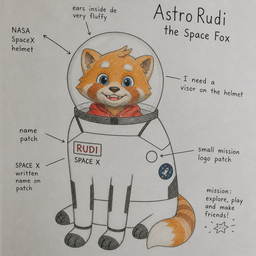 Astro Rudi
the Space Fox
ears inside de
very fluffy
NASA
SpaceX
helmet
I need a
visor on the helmet
name
patch
RUDI
SPACE X
small mission
logo patch
SPACE X
written
name on
patch
mission:
explore, play
and make
friends!